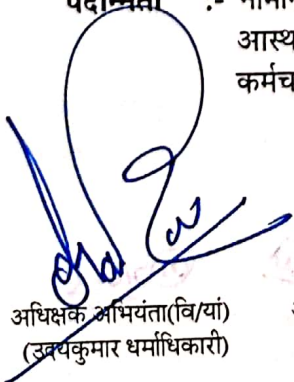 पदोन्नती :-
आस्थ
कर्मच
अधिक्षक अभियंता(वि/यां)
(उदयकुमार धर्माधिकारी)